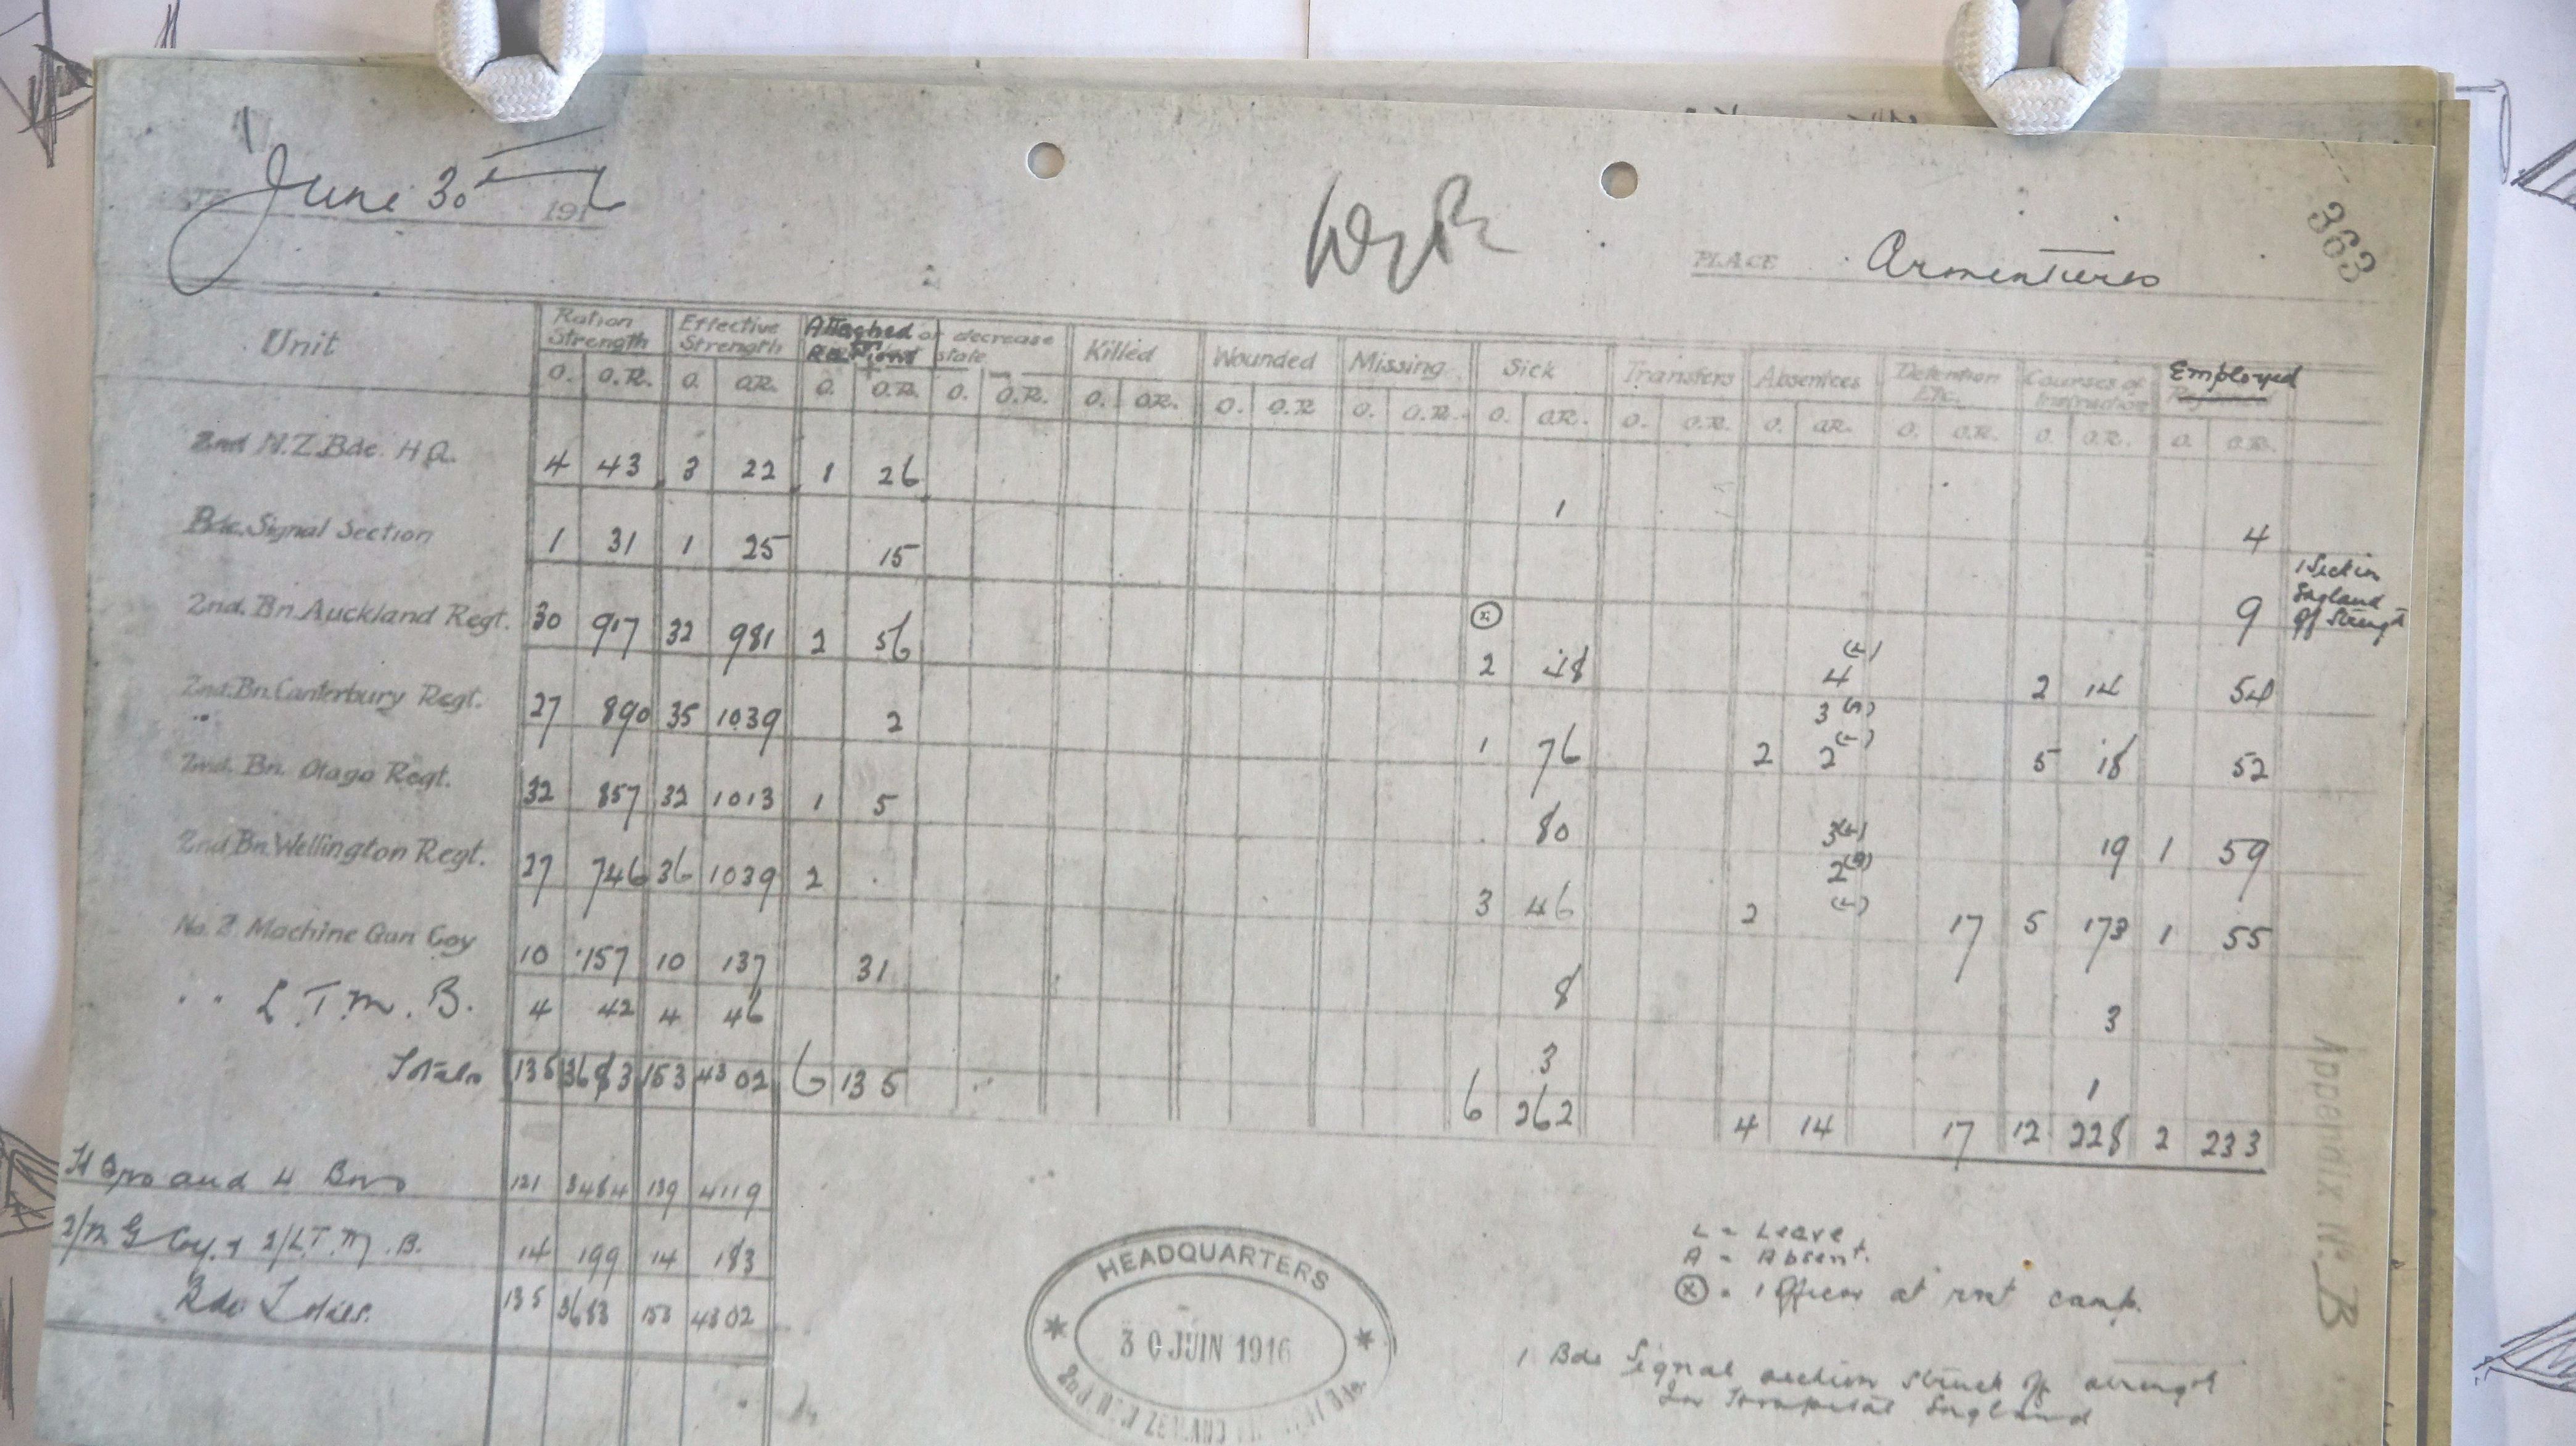 June 30th 1916
363
PLACE Armentieres
Unit Ration Strength Effective Strength Attached Rations or decrease state Killed Wounded Missing Sick Transfers Absentees Detention Etc. Courses of Instruction Employed
+ —
O. O.R. O. O.R. O. O.R. O. O.R. O. O.R. O. O.R. O. O.R. O. O.R. O. O.R. O. O.R. O. O.R. O. O.R. O. O.R.
2nd N.Z. Bde. H.Q. 4 43 3 22 1 26 1 4
Bde. Signal Section 1 31 1 25 15 9 1 Section England off Strength
2nd. Bn. Auckland Regt. 30 917 32 981 2 56 ⓧ 2 48 4 (L) 2 14 54
2nd. Bn. Canterbury Regt. 27 890 35 1039 2 1 76 2 3 (A) 2 (L) 5 18 52
2nd. Bn. Otago Regt. 32 857 32 1013 1 5 80 3 (L) 19 1 59
2nd Bn. Wellington Regt. 27 746 36 1039 2 3 46 2 2 (A) (L) 17 5 173 1 55
No. 2 Machine Gun Coy 10 157 10 137 31 8 3
" " L.T.M.B. 4 42 4 46 3 1
Totals 135 3683 153 4302 6 135 6 262 4 14 17 12 228 2 233
H Qrs and 4 Bns 121 3484 139 4119
2/M G Coy. & 2/L.T.M.B. 14 199 14 183
Bde Totals. 135 3683 153 4302
L = Leave
A = Absent.
ⓧ = 1 Officer at rest camp.
1 Bde Signal section struck off strength
In Hospital England
HEADQUARTERS
30 JUIN 1916
2nd N. ZEALAND Bde.
Appendix No. B